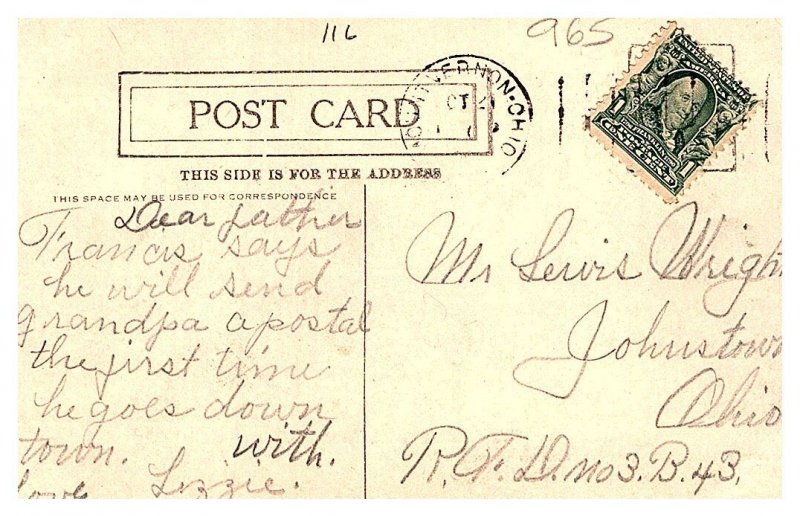 116
965
POST CARD
THIS SIDE IS FOR THE ADDRESS
THIS SPACE MAY BE USED FOR CORRESPONDENCE
VERNON·OHIO
OCT 2
1 1
Dear father
Francis says
he will send
grandpa a postal
the first time
he goes down
town. with.
love Lizzie.
Mr Lewis Wright
Johnstown
Ohio
R. F. D. no 3. B. 43.